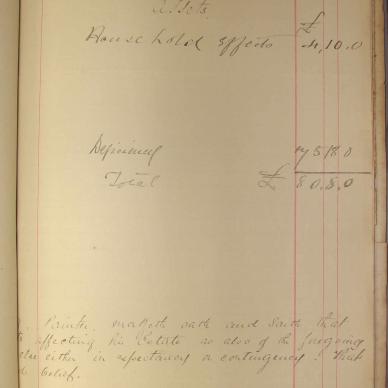 Assets
£
Household effects 4.10.0
Deficiency 75.18.0
Total £ 80.8.0
Painter, maketh oath and saith that
affecting his Estate as also of the foregoing
else either in expectancy or contingency! That
belief.